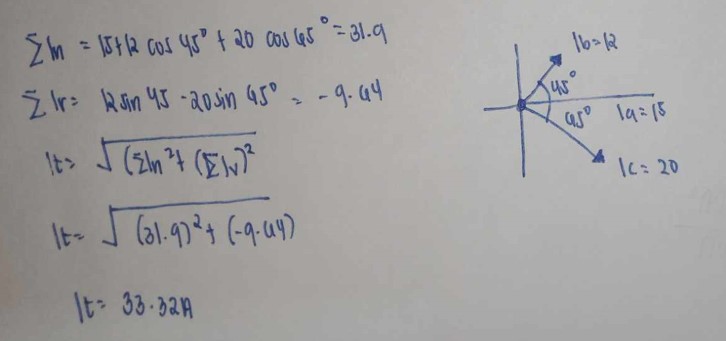 Σ Ih = 15+12 cos 45° + 20 cos 65° = 31.9
Σ Iv = 12 sin 45 - 20 sin 65° = - 9.64
It = √(Σ Ih² + (Σ Iv)²
It = √(31.9)² + (-9.64)
It = 33.32A
Ib = 12
45°
65°
Ia = 15
Ic = 20